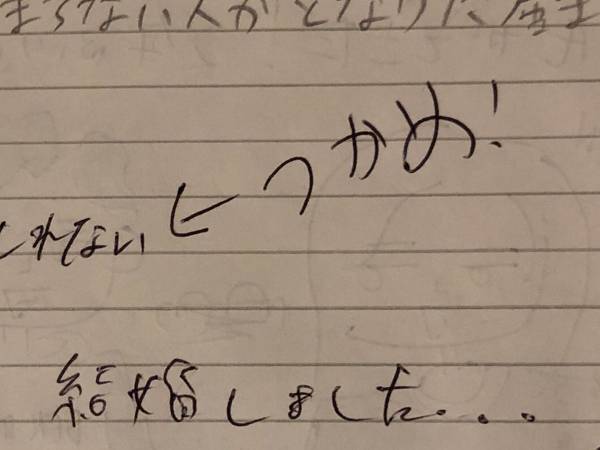 ない人がとなりに
しれない とつかめ!
結婚しました...